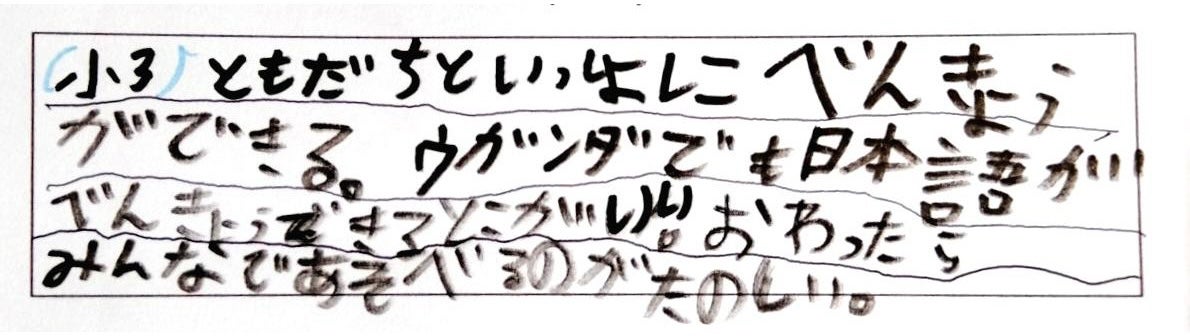 (小3)ともだちといっしょにべんきょう
ができる。ウガンダでも日本語が
べんきょうできるとこがいい。おわったら
みんなであそべるのがたのしい。